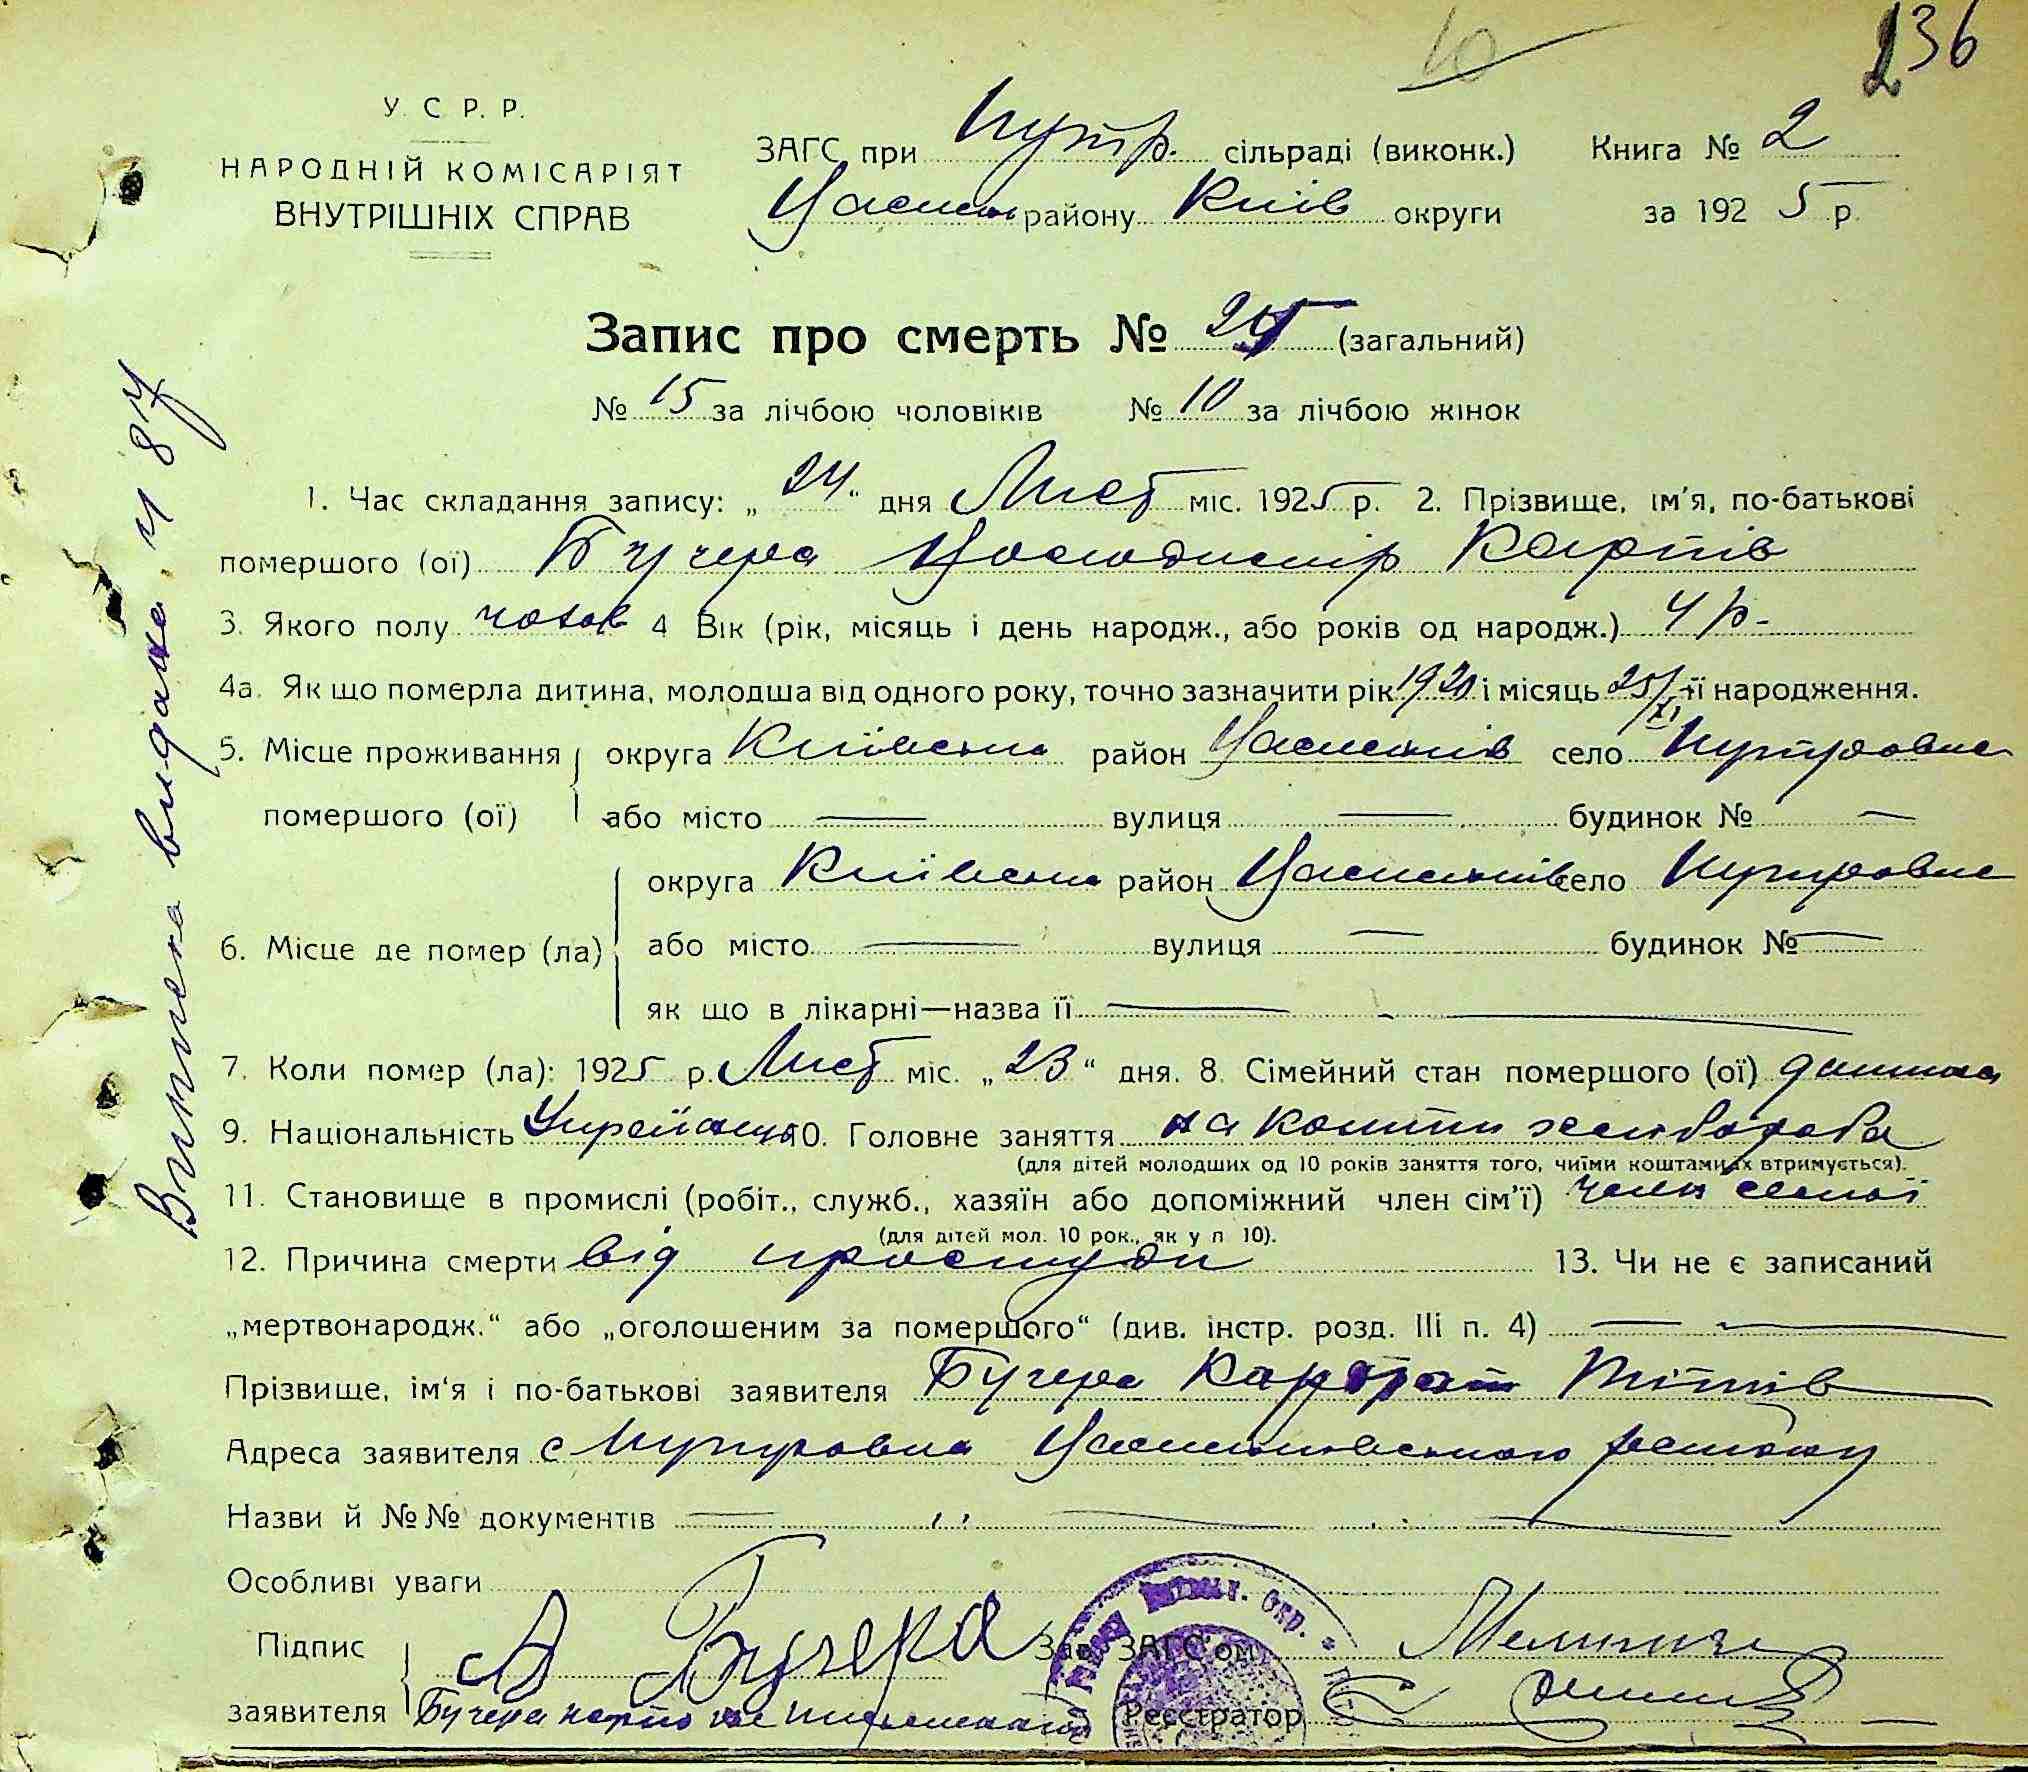 10
236
У. С. Р. Р.
НАРОДНІЙ КОМІСАРІЯТ
ВНУТРІШНІХ СПРАВ
ЗАГС при Мутр. сільраді (виконк.) Книга № 2
району Київ округи за 1925 р.
Запис про смерть № 25 (загальний)
№ 15 за лічбою чоловіків № 10 за лічбою жінок
1. Час складання запису: „ 24 “ дня Лист міс. 1925 р. 2. Прізвище, ім'я, по-батькові
помершого (ої) Бучера Володимір Карпів
3. Якого полу чолов 4 Вік (рік, місяць і день народж., або років од народж.) 4 р.
4а. Як що померла дитина, молодша від одного року, точно зазначити рік 1920 і місяць 25/XI її народження.
5. Місце проживання округа Київська район село
помершого (ої) або місто — вулиця — будинок № —
округа Київська район село
6. Місце де помер (ла) або місто — вулиця — будинок № —
як що в лікарні—назва її —
7. Коли помер (ла): 1925 р. Лист міс. „ 23 “ дня. 8. Сімейний стан помершого (ої) дитина
9. Національність Українець 10. Головне заняття на кошти хлібороба
(для дітей молодших од 10 років заняття того, чиїми коштами їх втримується).
11. Становище в промислі (робіт., служб., хазяїн або допоміжний член сім'ї) член семії
(для дітей мол. 10 рок., як у п 10).
12. Причина смерти від простуди 13. Чи не є записаний
„мертвонародж.“ або „оголошеним за помершого“ (див. інстр. розд. III п. 4) —
Прізвище, ім'я і по-батькові заявителя Бучера Карпо Тітів
Адреса заявителя с району
Назви й №№ документів —
Особливі уваги
Підпис А Бучера Зав. ЗАГС'ом
заявителя Бучера Реєстратор
Виписка видана ч 87